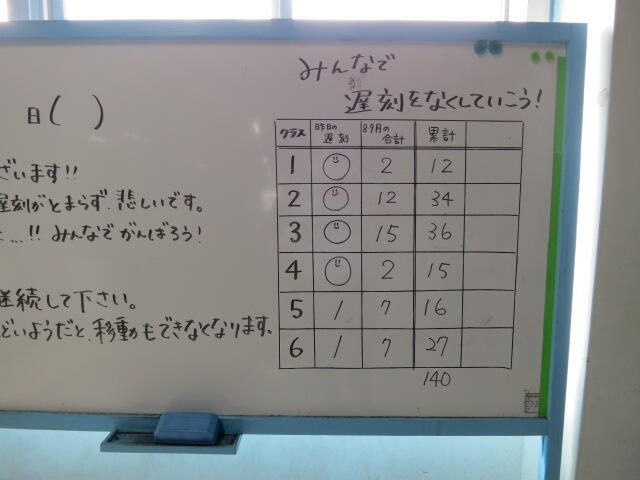 みんなで
遅刻をなくしていこう!
日( )
ざいます!!
遅刻がとまらず、悲しいです。
…!! みんなでがんばろう!
継続して下さい。
どいようだと、移動もできなくなります。
クラス 昨日の遅刻 8.9月の合計 累計
1 2 12
2 12 34
3 15 36
4 2 15
5 1 7 16
6 1 7 27
140